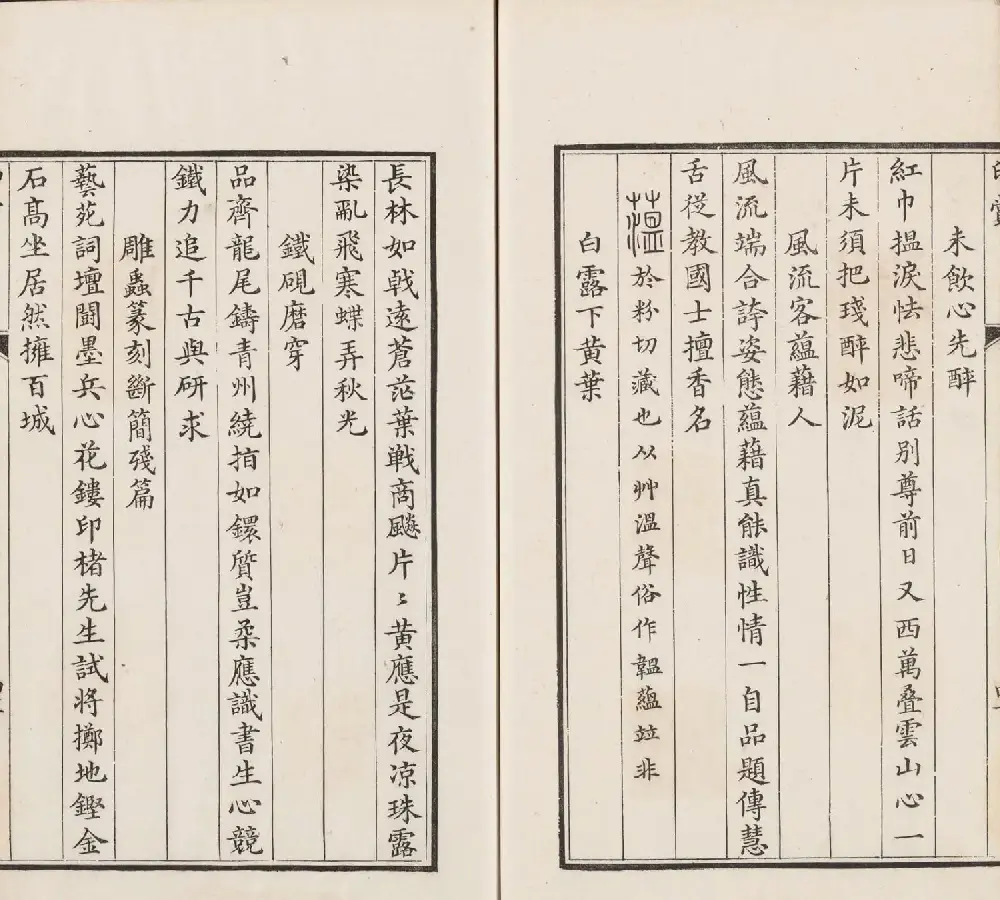 未飲心先醉
紅巾揾淚怯悲啼話別尊前日又西萬叠雲山心一
片未須把琖醉如泥
風流客蘊藉人
風流端合誇姿態蘊藉真能識性情一自品題傳慧
舌從教國士擅香名
薀於粉切藏也从艸温聲俗作韞蘊竝非
白露下黄葉
長林如戟遠蒼茫葉戰商飈片〻黄應是夜凉珠露
染亂飛寒蝶弄秋光
鐵硯磨穿
品齊龍尾鑄青州繞拍如鐶質豈柔應識書生心競
鐵力追千古與研求
雕蟲篆刻斷簡殘篇
藝苑詞壇鬪墨兵心花鏤印楮先生試將擲地鏗金
石高坐居然擁百城